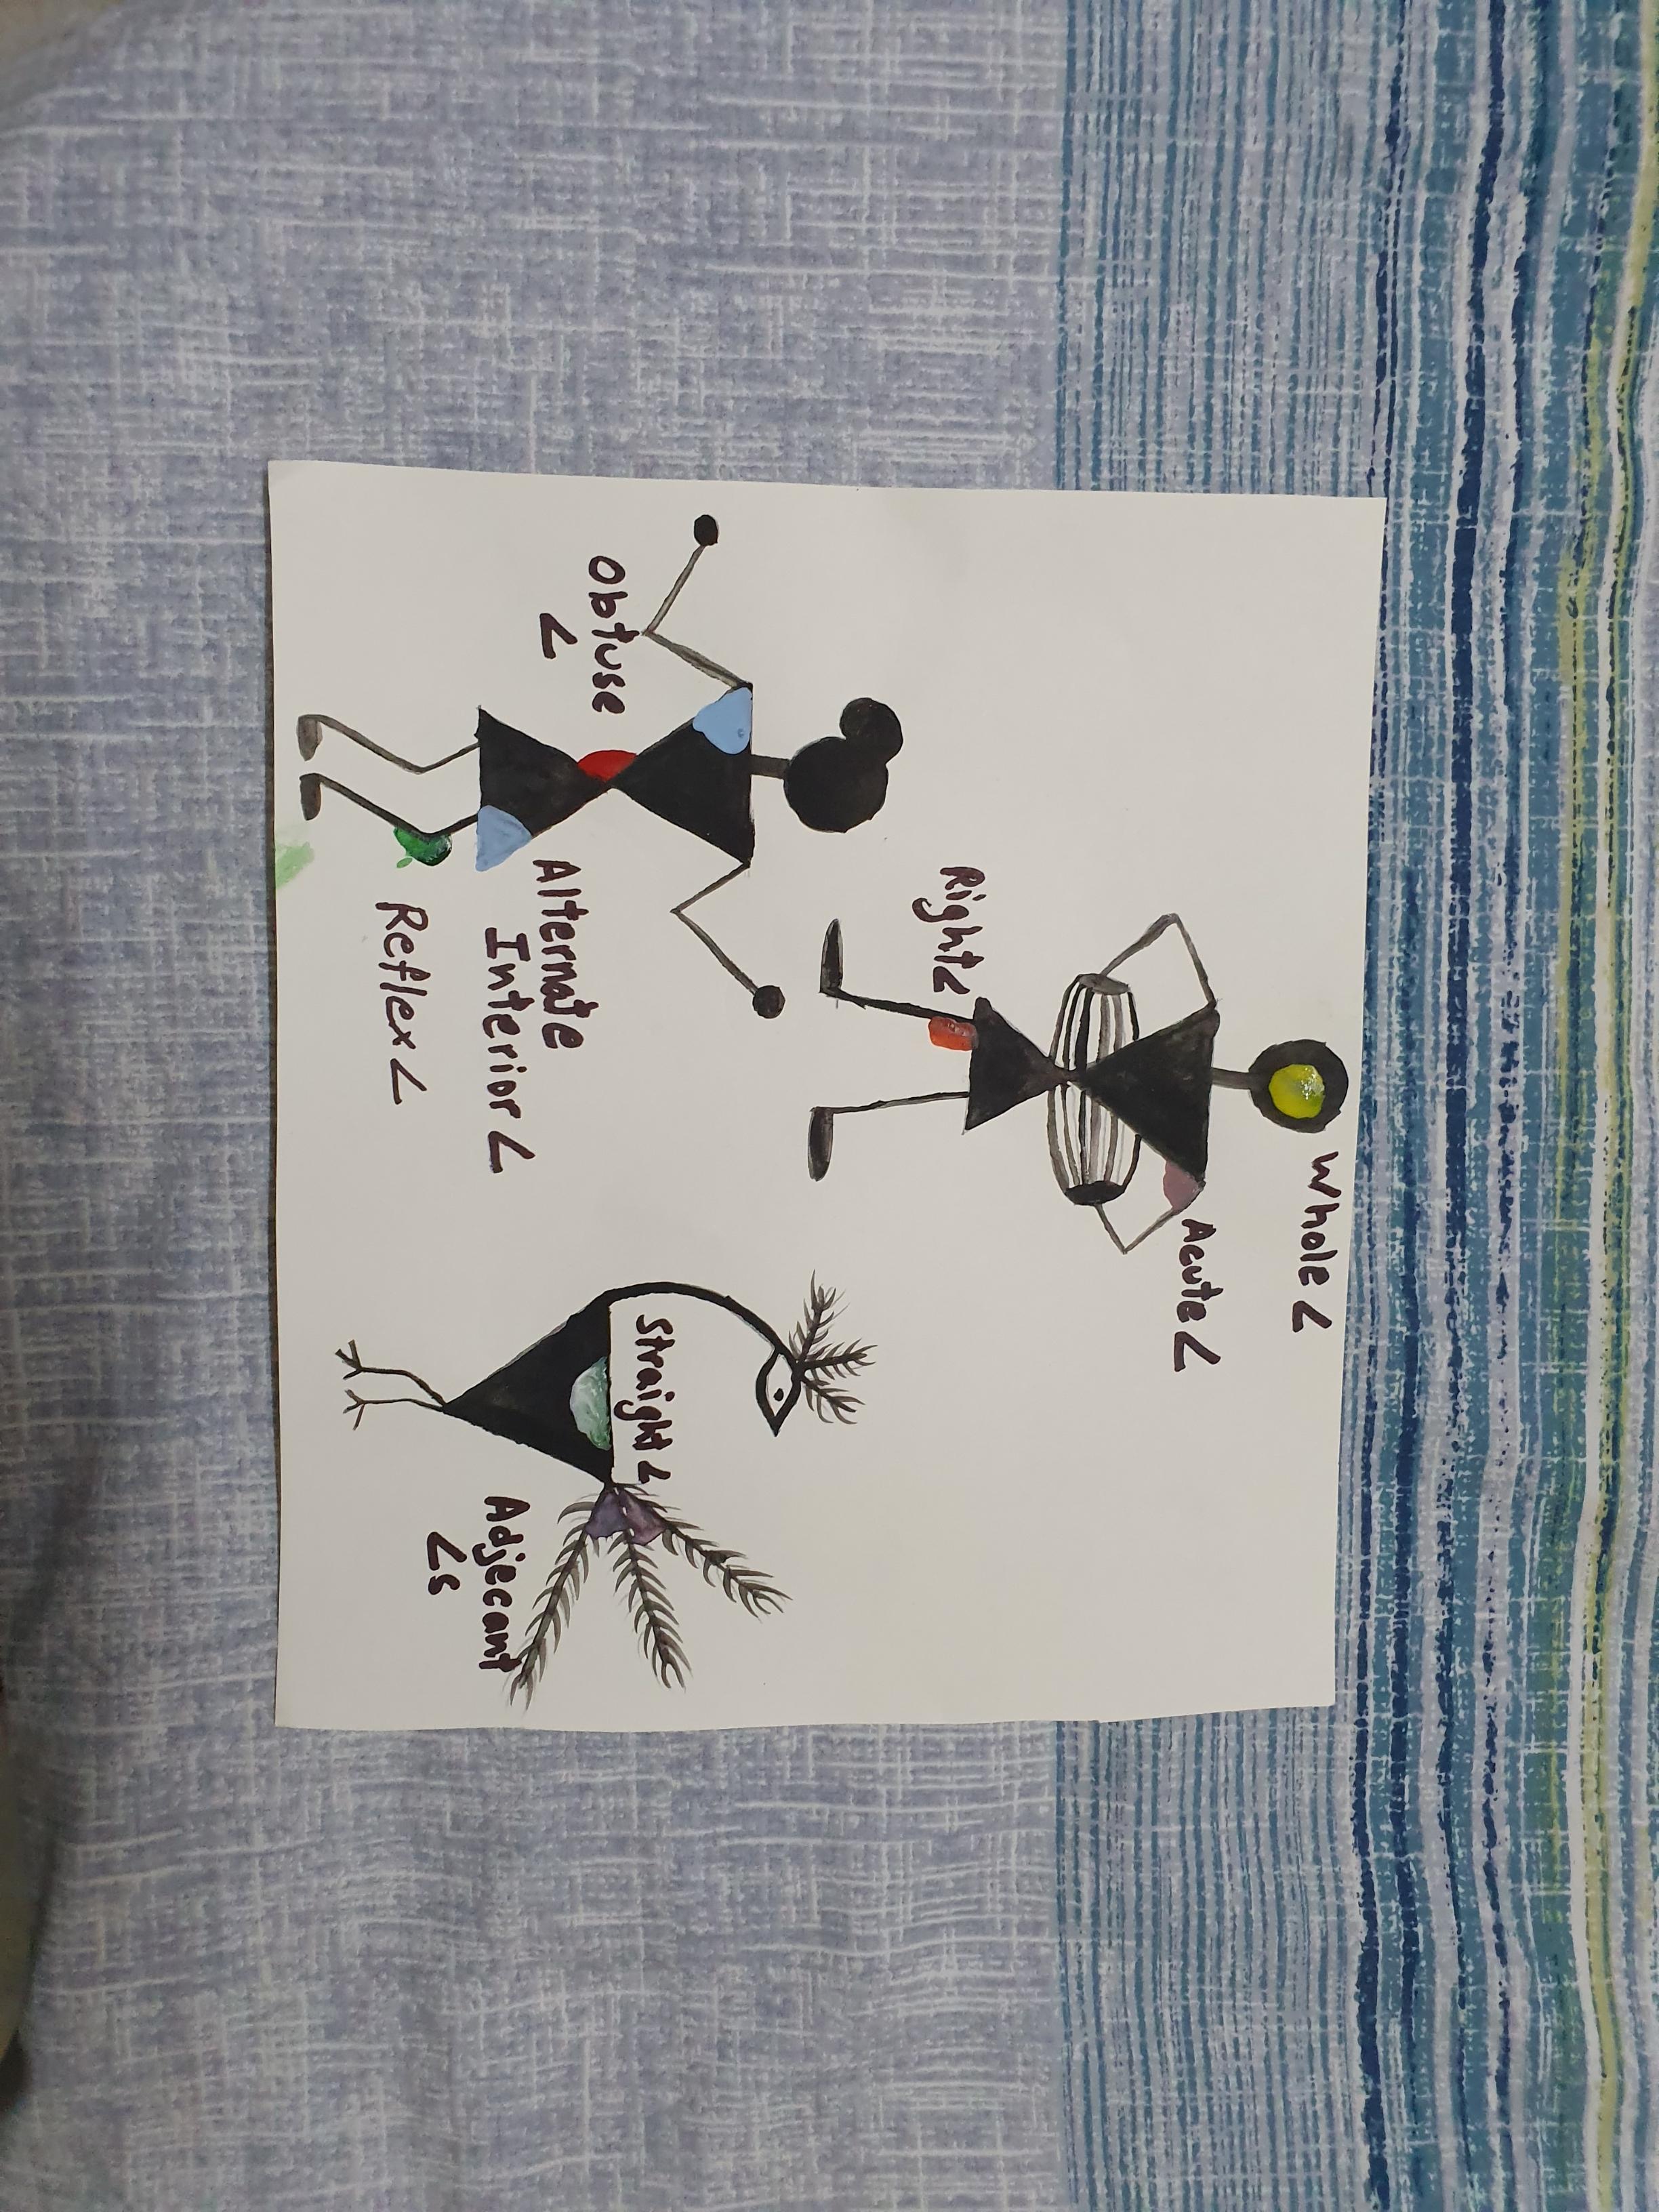 Whole ∠
Acute ∠
Right∠
Obtuse
∠
Alternate
Interior ∠
Reflex ∠
Straight ∠
Adjecant
∠s